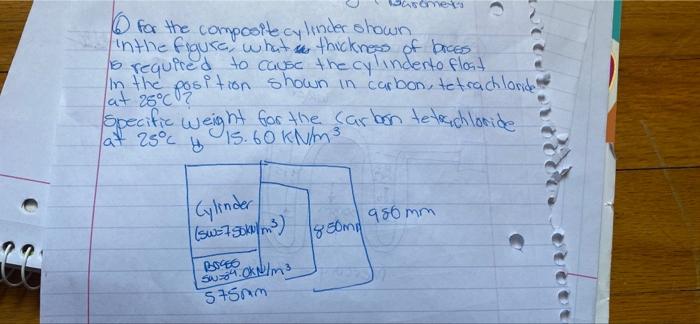 6 For the composite cylinder shown
in the figure, what thickness of brass
is required to cause the cylinder to float
in the position shown in carbon tetrachloride
at 25°C?
Specific weight for the carbon tetrachloride
at 25°C is 15.60 KN/m³
Cylinder
850mm
980 mm
Brass
575mm